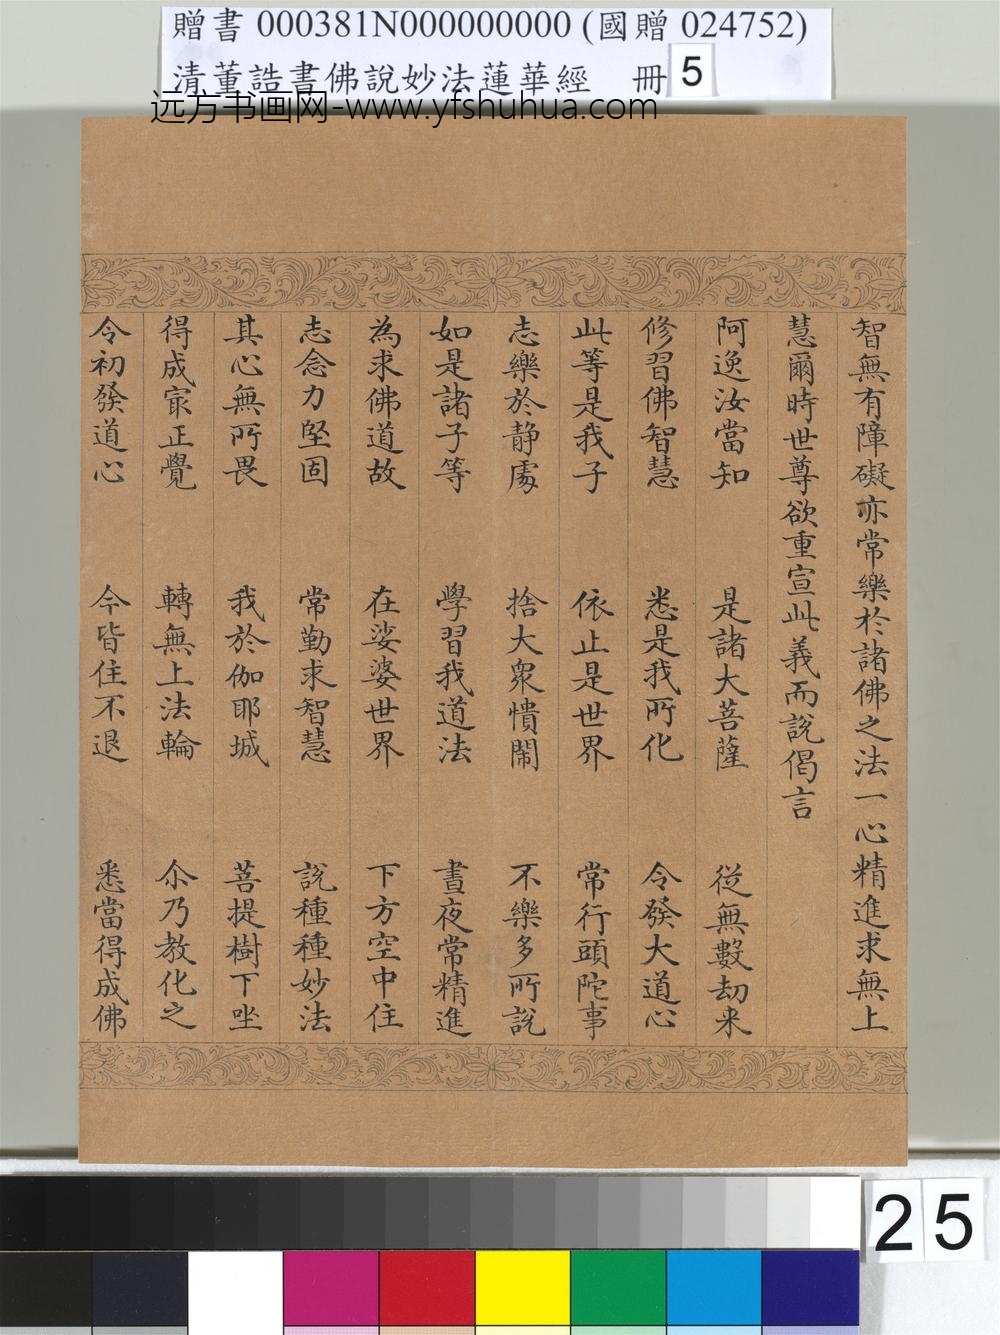 贈書 000381N000000000 (國贈 024752)
清董誥書佛說妙法蓮華經 冊 5
远方书画网-www.yfshuhua.com
智無有障礙亦常樂於諸佛之法一心精進求無上
慧爾時世尊欲重宣此義而說偈言
阿逸汝當知 是諸大菩薩 從無數劫来
修習佛智慧 悉是我所化 令發大道心
此等是我子 依止是世界 常行頭陀事
志樂於静處 捨大眾憒閙 不樂多所說
如是諸子等 學習我道法 晝夜常精進
為求佛道故 在娑婆世界 下方空中住
志念力堅固 常勤求智慧 說種種妙法
其心無所畏 我於伽耶城 菩提樹下坐
得成冣正覺 轉無上法輪 尒乃教化之
令初發道心 今皆住不退 悉當得成佛
25